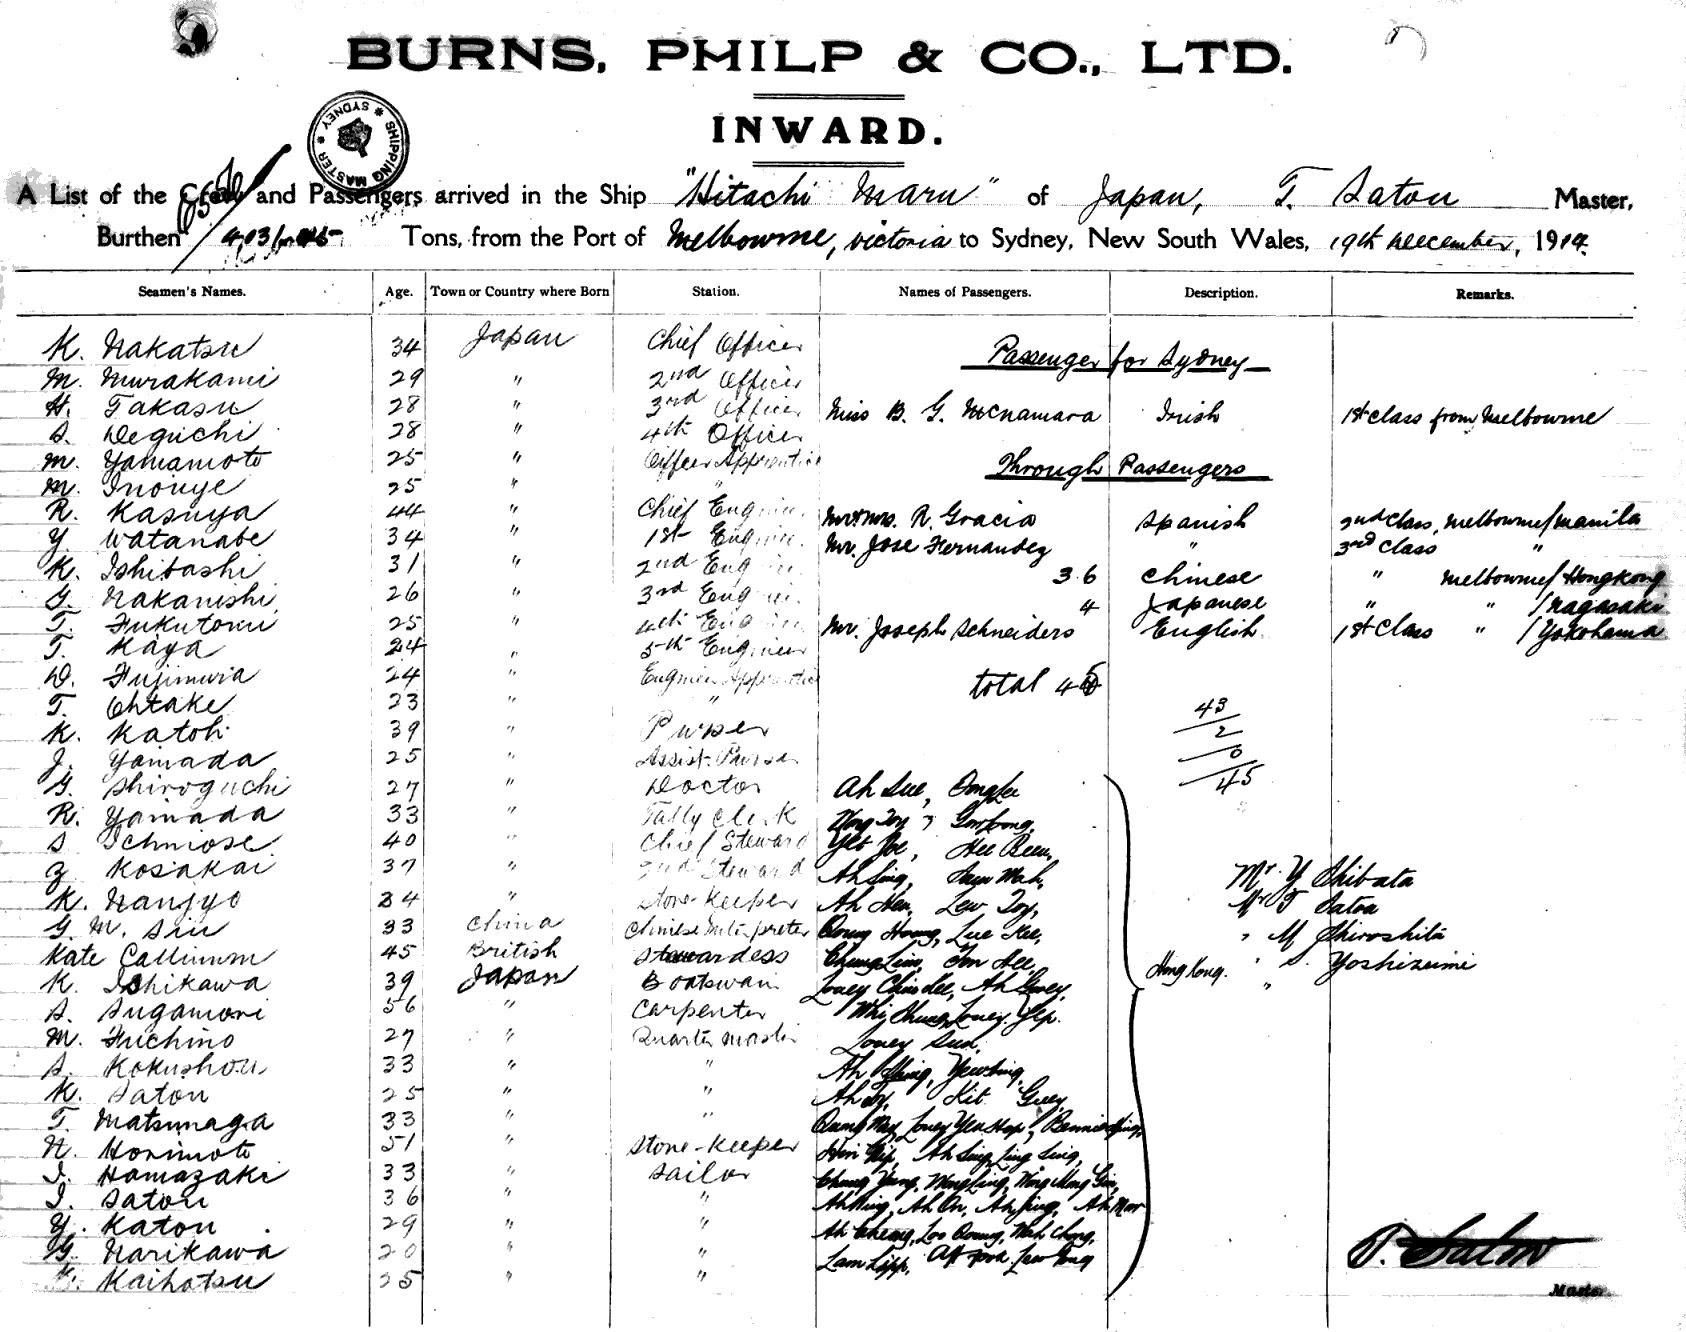 BURNS, PHILP & CO., LTD.
INWARD.
SHIPPING MASTER * SYDNEY *
A List of the Crew and Passengers arrived in the Ship "Hitachi Maru" of Japan, T. Satou Master,
Burthen Tons, from the Port of Melbourne, Victoria to Sydney, New South Wales, 19th December, 1914.
Seamen's Names. Age. Town or Country where Born Station. Names of Passengers. Description. Remarks.
K. Nakatsu 34 Japan Chief Officer Passenger for Sydney
M. Murakami 29 " 2nd Officer
H. Takasu 28 " 3rd Officer Miss B. G. McNamara Irish 1st Class from Melbourne
S. Deguchi 28 " 4th Officer
M. Yamamoto 25 " Officer Apprentice Through Passengers
M. Inouye 25 " "
R. Kasuya 44 " Chief Engineer Mr & Mrs. R. Gracia Spanish 2nd Class, Melbourne/Manila
Y Watanabe 34 " 1st Engineer Mr. Jose Fernandez " 3rd Class "
K. Ishibashi 31 " 2nd Eng 36 Chinese " Melbourne/Hongkong
G. Nakanishi 26 " 3rd Eng 4 Japanese " " /Nagasaki
T. Fukutomi 25 " 4th Eng Mr. Joseph Schneiders English 1st Class " /Yokohama
T. Kaya 24 " 5th Engineer
D. Fujimura 24 " Engineer Apprentice total 45
T. Ohtake 23 " "
K. Katoh 39 " Purser
J. Yamada 25 " Assist. Purser
43
2
0
45
G. Shiroguchi 27 " Doctor Ah Sue,
R. Yamada 33 " Tally Clerk
S 40 " Chief Steward Hee Been,
Z Kosakai 37 " 2nd Steward Ah Sing,
K. Nanjyo 34 " Store-Keeper Ah Hen, Lew Toy,
G. M. 33 China Chinese Interpreter Lue Kee,
Kate Callinum 45 British Stewardess Chung Lim,
K. Ishikawa 39 Japan Boatswain Louey Chin Lee, Ah Guey,
S. Sugamori 56 " Carpenter Whi Chung, Louey Yep.
M. Fuchino 27 " Quarter Master Louey Sun,
S. Kokushou 33 " " Ah
K. Satou 25 " " Kit Guey
T. Matsunaga 33 " " Louey Yen Hop,
N. Horimoto 51 " Store-Keeper Ah Sing, Ling Sing,
I. Hamazaki 33 " Sailor Chung Yung, Wong Ling,
I. Satou 36 " " Ah King, Ah On, Ah Jing,
Y. Katou 29 " " Ah Cheong, Loo Quong, Wah Chong,
G. Narikawa 20 " " Lam Lipp,
Kaihatsu 25 " "
Mr. Y Shibata
Mr T Satou
" M Shiroshita
Hong Kong. " S. Yoshizumi
"
T. Satou
Master.